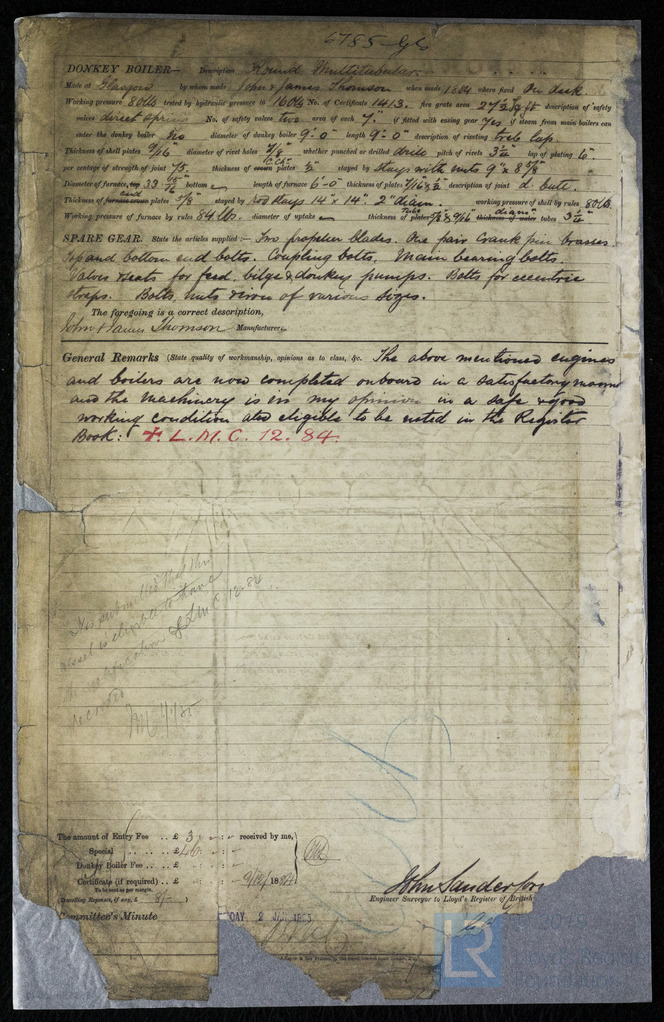 6785 Gls
DONKEY BOILER— Description Round Multitubular
Made at Glasgow by whom made John & James Thomson when made 1884 where fixed On deck
Working pressure 80 lb tested by hydraulic pressure to 160 lb No. of Certificate 1413. fire grate area 27½ sq ft description of safety
valves direct spring No. of safety valves two area of each 7" if fitted with easing gear yes if steam from main boilers can
enter the donkey boiler No diameter of donkey boiler 9'-0" length 9'-0" description of riveting treb lap.
Thickness of shell plates 9/16 diameter of rivet holes 7/8" whether punched or drilled drilled pitch of rivets lap of plating 6".
per centage of strength of joint 75 thickness of plates stayed by Stays with nuts
Diameter of furnace, bottom length of furnace 6'-0" thickness of plates description of joint d. butt.
Thickness of plates 5/8 stayed by stays 14" x 14". 2" diam. working pressure of shell by rules 80 lb
Working pressure of furnace by rules 84 lb. diameter of uptake thickness of tubes 3¼"
SPARE GEAR. State the articles supplied:— Two propeller blades. One pair Crank pin brasses.
Top and bottom end bolts. Coupling bolts. Main bearing bolts.
Valves & seats for feed, bilge & donkey pumps. Bolts for eccentric
straps. Bolts, nuts & iron of various sizes.
The foregoing is a correct description,
John & James Thomson Manufacturer
General Remarks (State quality of workmanship, opinions as to class, &c. The above mentioned engines
and boilers are now completed onboard in a satisfactory manner
and the machinery is in my opinion in a safe & good
working condition and eligible to be noted in the Register
Book: + L.M.C. 12.84.
It is submitted that this
vessel is eligible to have
the notification of L.M.C. 12.84
recorded
The amount of Entry Fee .. £ 3 : - : - received by me,
Special .. .. £
Donkey Boiler Fee .. £
Certificate (if required) .. £ 1884
To be sent as per margin.
(Travelling Expenses, if any, £ 8/- )
John Sanderson
Engineer Surveyor to Lloyd's Register of British
Committee's Minute
DAY 2 JAN 1885
LR
Lloyd's Register
Foundation